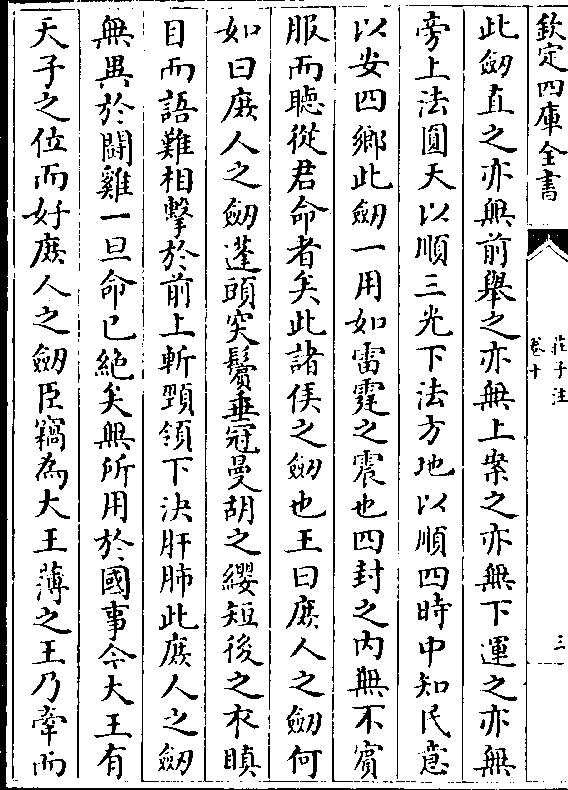 欽定四庫全書
莊子注
卷十
三
此劒直之亦無前舉之亦無上案之亦無下運之亦無
旁上法圓天以順三光下法方地以順四時中知民意
以安四鄉此劒一用如雷霆之震也四封之內無不賓
服而聽從君命者矣此諸侯之劒也王曰庶人之劒何
如曰庶人之劒蓬頭突鬢垂冠曼胡之纓短後之衣瞋
目而語難相擊於前上斬頸領下決肝肺此庶人之劒
無異於鬪雞一旦命已絶矣無所用於國事今大王有
天子之位而好庶人之劒臣竊為大王薄之王乃牽而